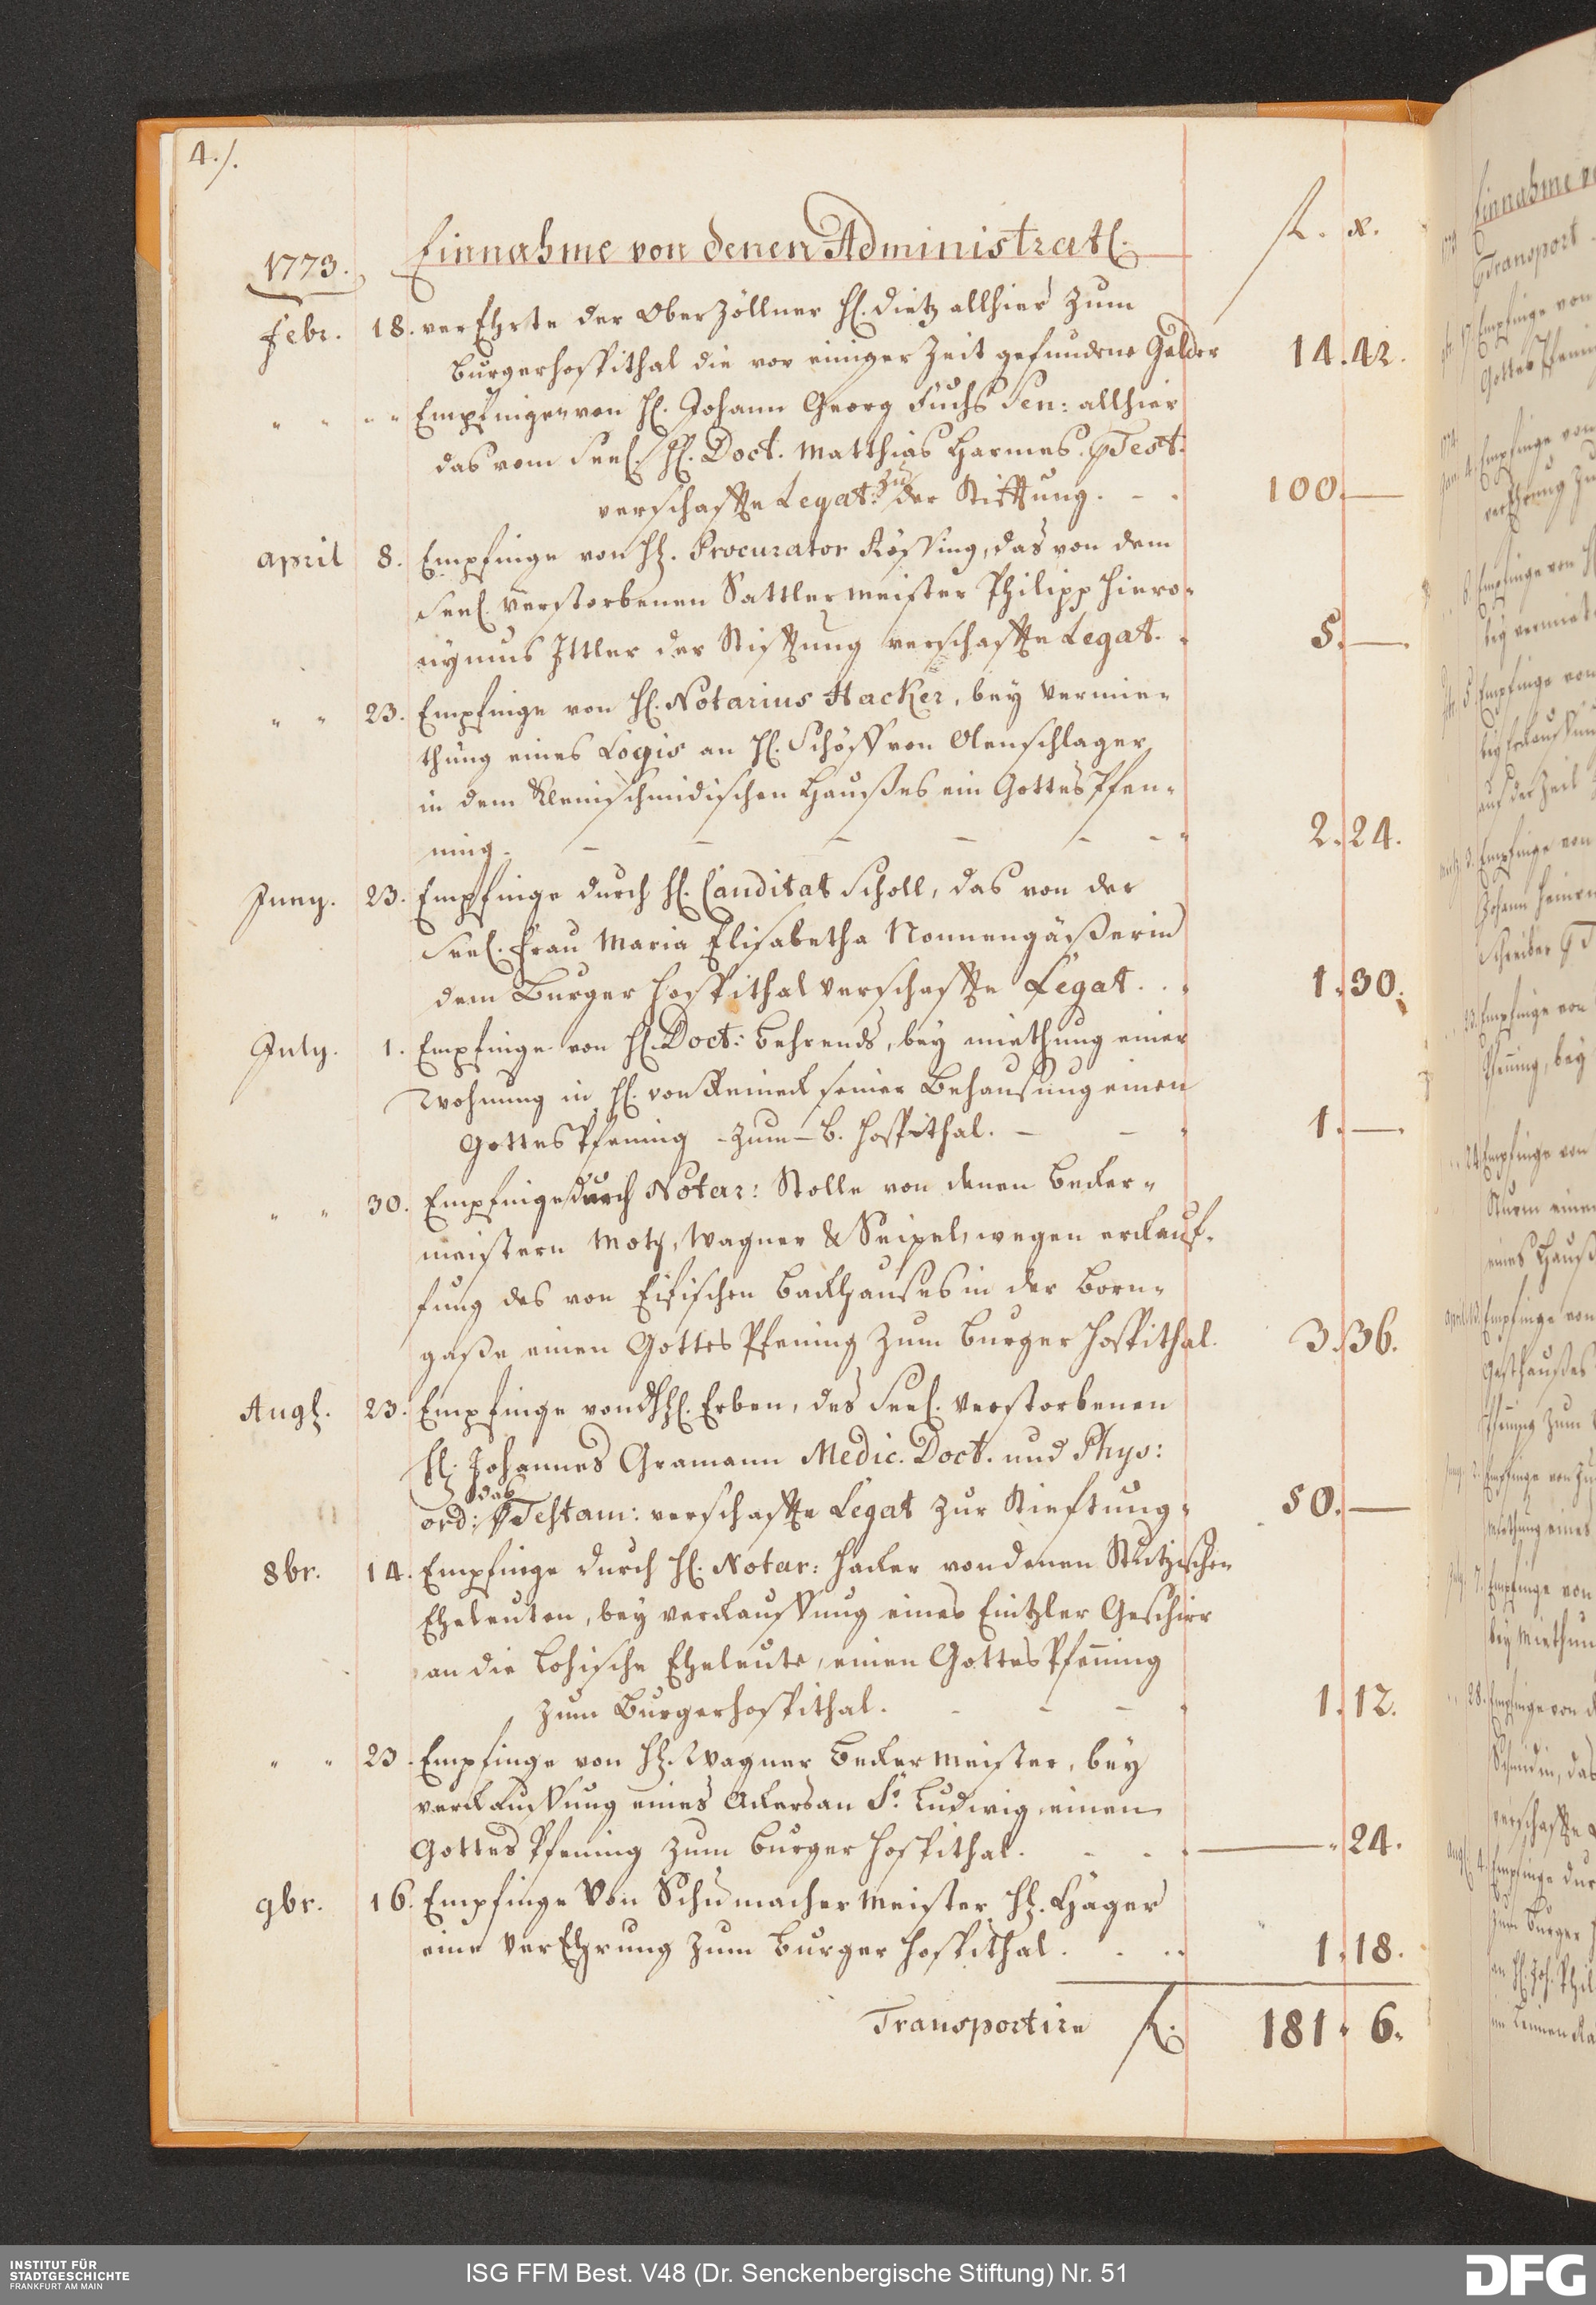 4./.
1773. Einnahme von denen Administrat. fl. x.
Febr. 18. verEhrte der Oberzöllner H. Dietz allhier zum
Burgerhospithal die vor einiger Zeit gefundene Gelder 14. 42.
" " " " Empfinge von H. Johann Georg Fuchs Sen: allhier
das vom Seel. H. Doct. Matthias Harmes. p Test.
verschaffte Legat: zu der Stifftung. - . 100. —
April 8. Empfinge von H. Procurator Rössing, das von dem
Seel. verstorbenen Sattlermeister Philipp Hiero-
nymus Ittler der Stiftung verschaffte Legat. . 5. —.
" " 23. Empfinge von H. Notarius Hacker, bey Vermie-
thung eines Logis an H. Schöff von Olenschlager
in dem Kleinschmidischen Haußes ein GottesPfen-
ning. - - - - - - 2. 24.
Juny. 23. Empfinge durch H. Canditat Scholl, das von der
Seel. Frau Maria Elisabetha Nonnengäßerin
dem Burger Hospithal verschaffte Legat . . . 1. 30.
July. 1. Empfinge von H. Doct: Behrends, bey miethung einer
Wohnung in H. von Reineck seiner Behausung einen
GottesPfening - zum - B. Hospithal. - - . 1. —.
" " 30. Empfinge durch Notar: Stolle von denen Becker-
meistern Motz, Wagner & Seipel, wegen erckauf-
fung des von Eisischen Backhauses in der Born-
gaße einen Gottes Pfening zum Burger Hospithal. 3. 36.
Aug. 23. Empfinge von dHH. Erben, des Seel. verstorbenen
H. Johannes Gramann Medic. Doct. und Phys:
ord: das p Testam: verschaffte Legat zur Stieftung. 50. —
8br. 14. Empfinge durch H. Notar: Hacker von denen Stützischen
Eheleuten, bey verckauffung eines Eintzler Geschirr
an die Lohische Eheleute, einen GottesPfenning
zum Burgerhospithal. - - - . 1. 12.
" " 23. Empfinge von H. Wagner Beckermeister, bey
verckauffung eines Ackers an Sr. Ludwig einen
Gottes Pfening zum Burger Hospithal. - . — " 24.
9br. 16. Empfinge Von Schumachermeister H. Häger
eine VerEhrung zum Burger Hospithal . . . . 1. 18.
Transportire fl. 181. 6.
Einnahme
Transport
INSTITUT FÜR
STADTGESCHICHTE
FRANKFURT AM MAIN
ISG FFM Best. V48 (Dr. Senckenbergische Stiftung) Nr. 51
DFG